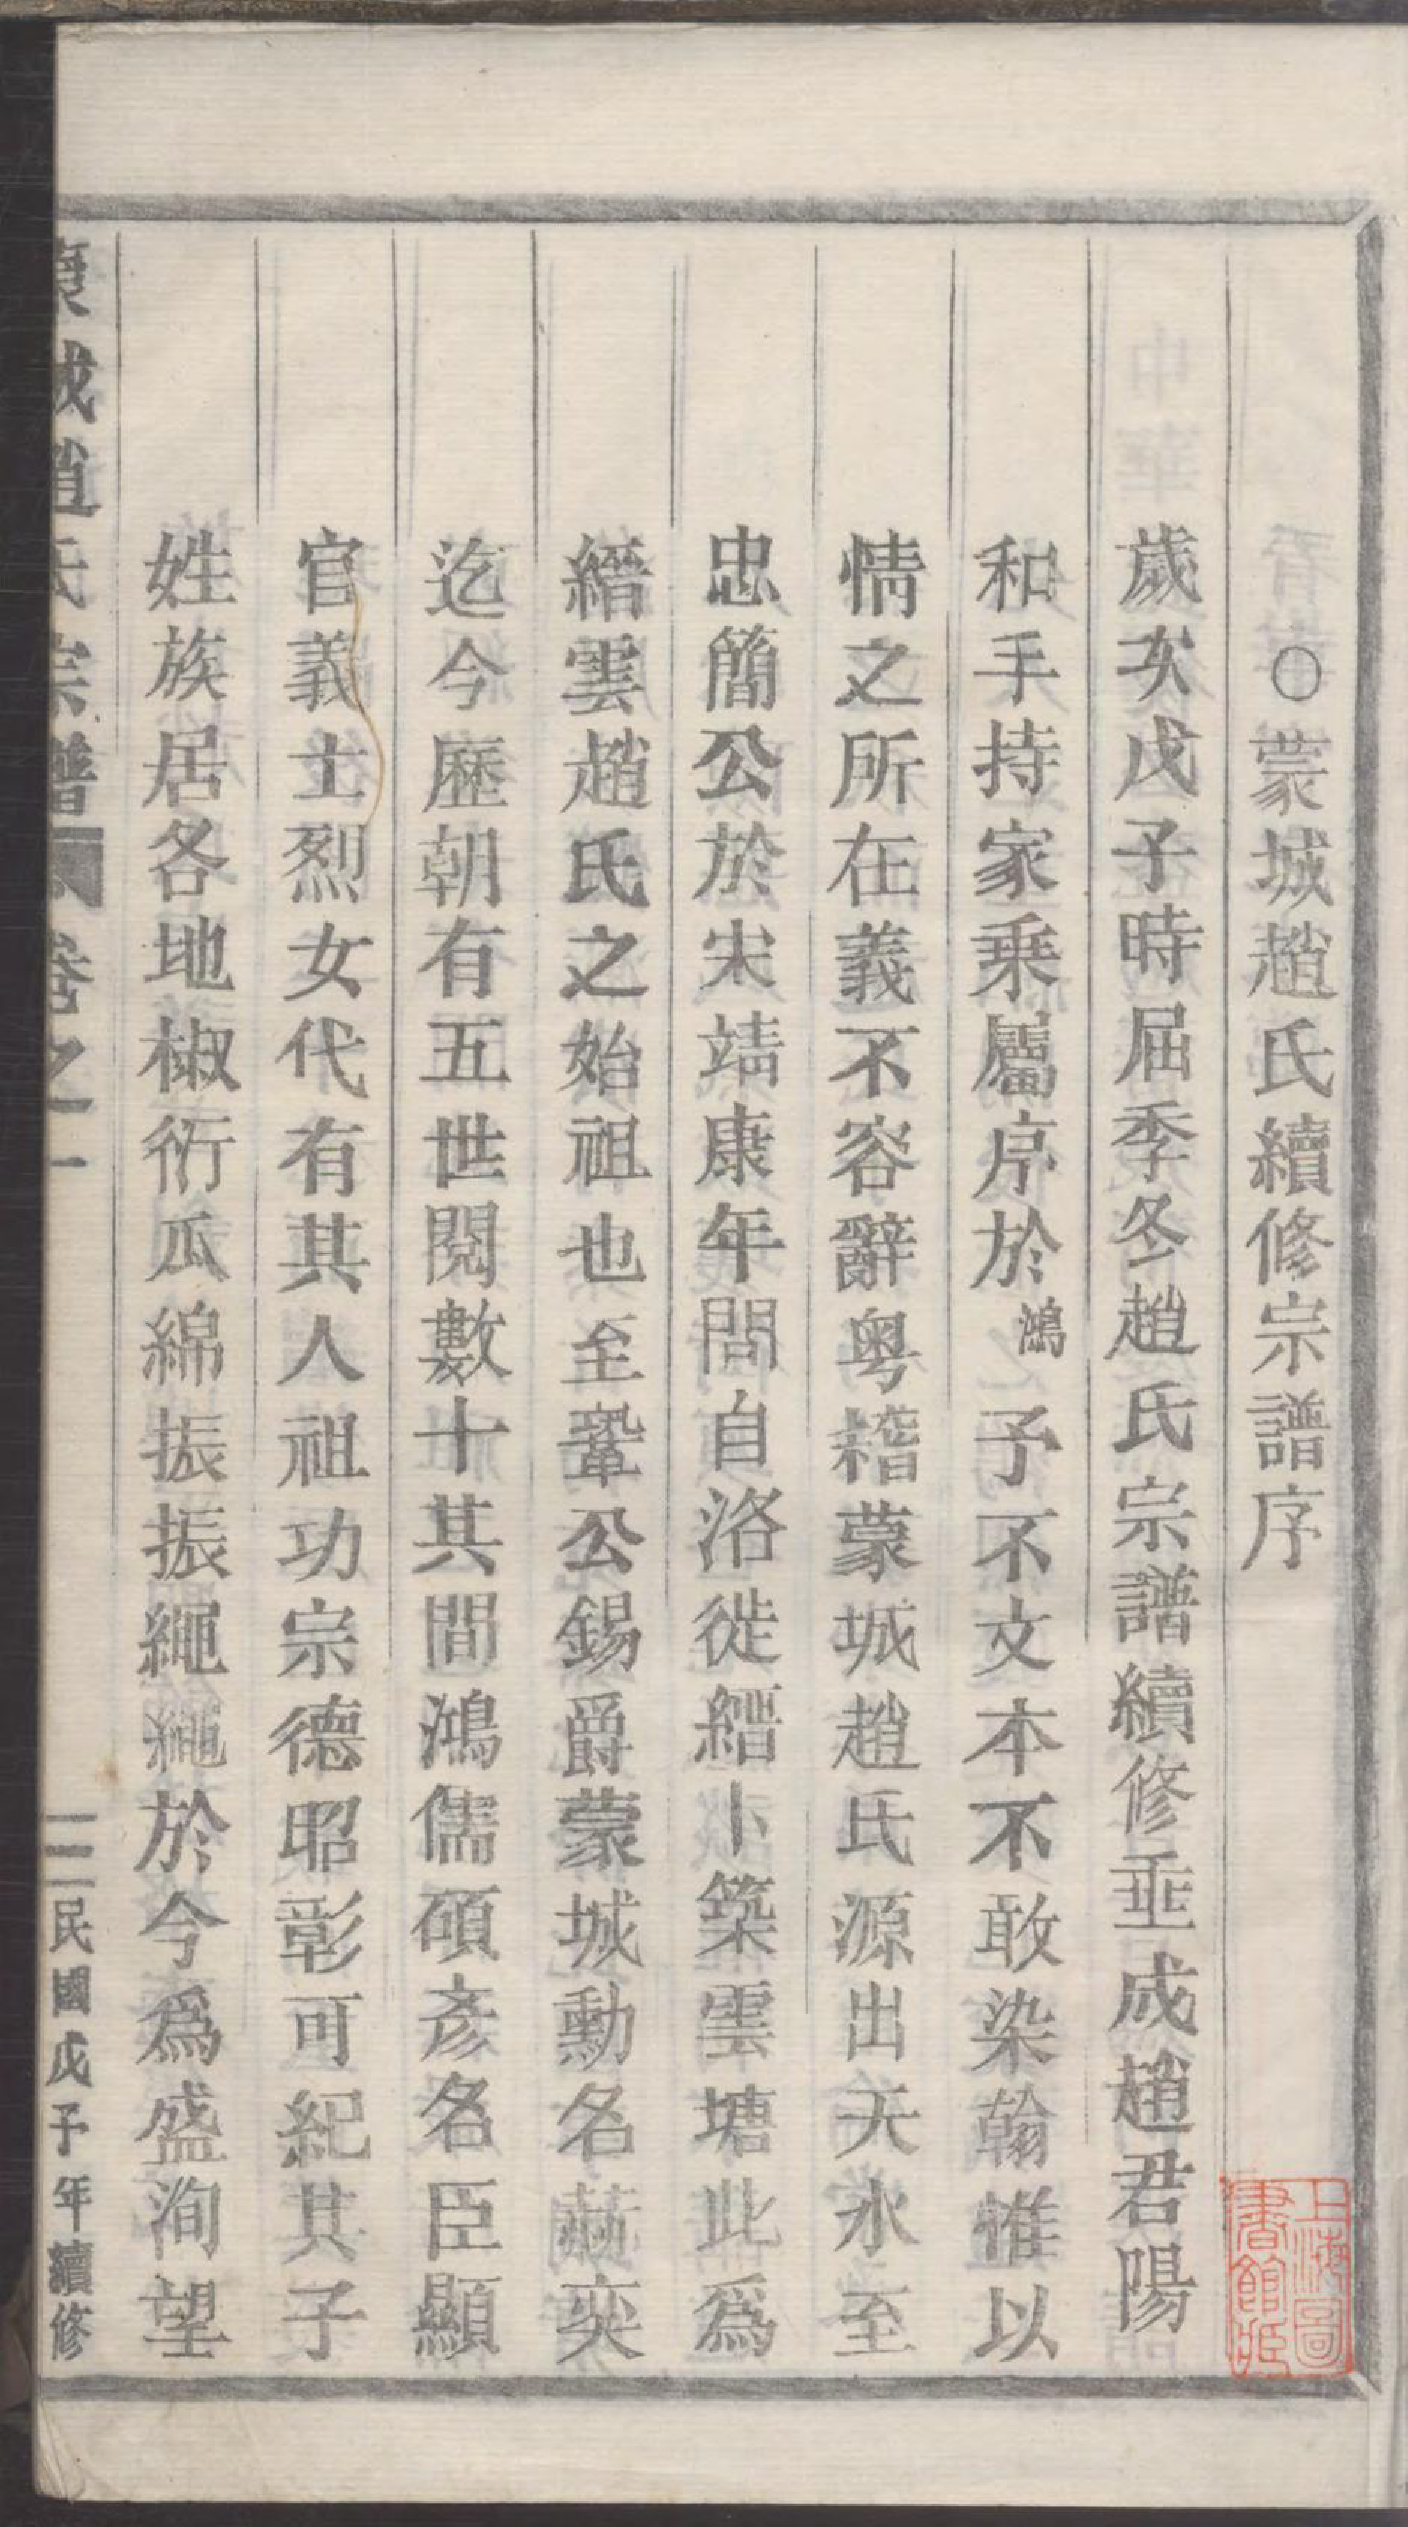 ○蒙城趙氏續修宗譜序
歲次戊子時屆季冬趙氏宗譜續修垂成趙君陽
和手持家乗屬序於鴻予不文本不敢染翰惟以
情之所在義不容辭粤稽蒙城趙氏源出天水至
忠簡公於宋靖康年間自洛徙縉卜築雲塘此爲
縉雲趙氏之始祖也至鞏公錫爵蒙城勳名赫奕
迄今歷朝有五世閱數十其間鴻儒碩彥名臣顯
官義士烈女代有其人祖功宗德昭彰可紀其子
姓族居各地椒衍瓜綿振振繩繩於今爲盛洵望
趙氏宗譜 卷之一
三 民國戊子年續修
上海圖書館